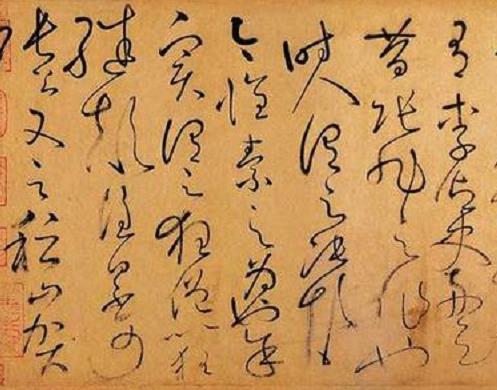 有李御史舟云
昔張旭之作也
時人謂之張顛
今懷素之為也余
實謂之狂僧以狂
繼顛誰曰不可
張公又云稽山賀